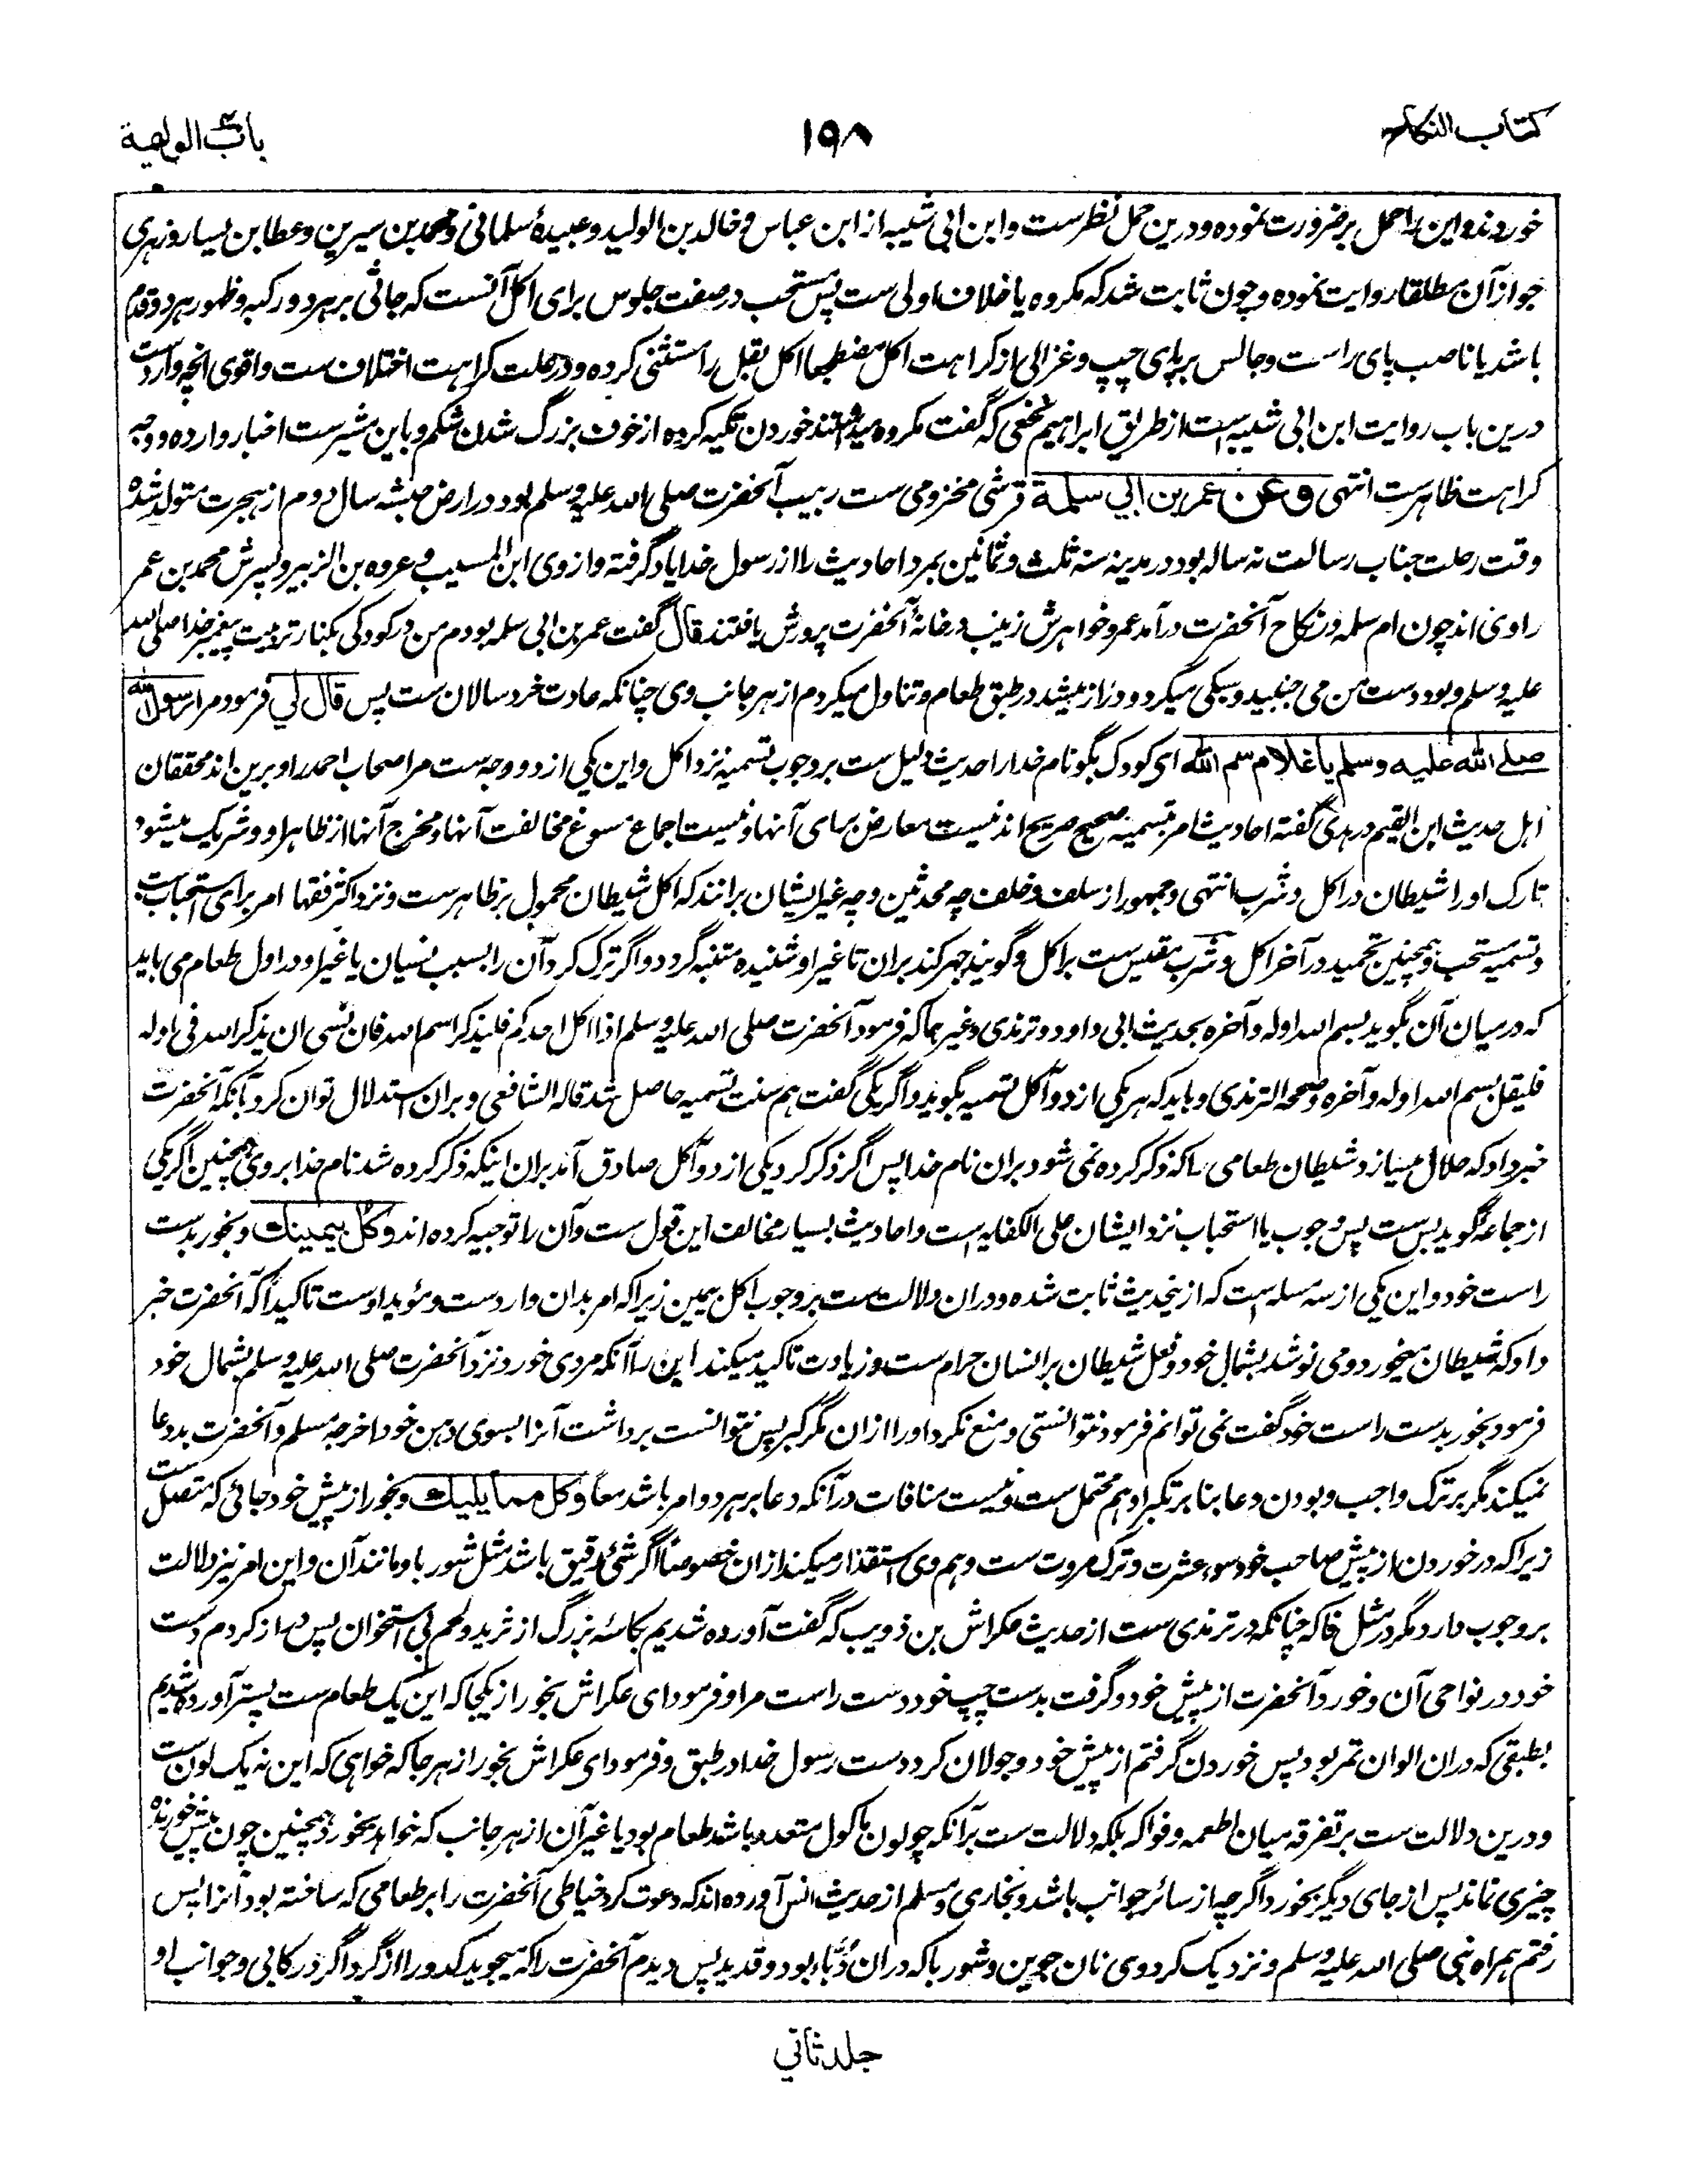 کتاب النکاح
۱۹۸
باب الولیمة
خوردند و این را حمل بر ضرورت نموده و درین حمل نظرست و ابن ابی شیبه از ابن عباس و خالد بن الولید و عبیدهٔ سلمانی و محمد بن سیرین و عطا بن یسار و زهری
جواز آن مطلقا روایت نموده و چون ثابت شد که مکروه یا خلاف اولی ست پس مستحب در صفت جلوس برای اکل آنست که جاثی بر هر دو رکبه و ظهور هر دو قدم
باشد یا ناصب پای راست و جالس بر پای چپ و غزالی از کراهت اکل مضطجعا اکل بقل را مستثنی کرده و در علت کراهت اختلاف ست و اقوی انچه واردست
درین باب روایت ابن ابی شیبه است از طریق ابراهیم نخعی که گفت مکروه میداشتند خوردن تکیه کرده از خوف بزرگ شدن شکم و باین مشیرست اخبار وارده و وجه
کراهت ظاهرست انتهی وعن عمر بن ابي سلمة قرشی مخزومی ست ربیب آنحضرت صلی الله علیه وسلم بود در ارض حبشه سال دوم از هجرت متولد شده
وقت رحلت جناب رسالت نه ساله بود در مدینه سنه ثلث و ثمانین بمرد احادیث را از رسول خدا یاد گرفته و از وی ابن المسیب و عروه بن الزبیر و پسرش محمد بن عمر
راوی اند چون ام سلمه در نکاح آنحضرت درآمد عمر و خواهرش زینب در خانهٔ آنحضرت پرورش یافتند قال گفت عمر بن ابی سلمه بودم من در کودکی بکنار تربیت پیغمبر خدا صلی الله
علیه وسلم و بود دست من می جنبید و سبکی میکرد و دراز میشد در طبق طعام و تناول میکردم از هر جانب وی چنانکه عادت خرد سالان ست پس قال لي فرمود مرا رسول الله
صلے الله علیه وسلم یا غلام سم الله ای کودک بگو نام خدا را حدیث دلیل ست بر وجوب تسمیه نزد اکل و این یکی از دو وجه ست مر اصحاب احمد را و برین اند محققان
اهل حدیث ابن القیم در هدی گفته احادیث امر بتسمیه صحیح صریح اند نیست معارض برای آنها و نیست اجماع مسوغ مخالفت آنها و مخرج آنها از ظاهر او و شریک میشود
تارک او را شیطان در اکل و شرب انتهی و جمهور از سلف و خلف چه محدثین و چه غیر ایشان برانند که اکل شیطان محمول بر ظاهرست و نزد اکثر فقها امر برای استحباب ست
و تسمیه مستحب و همچنین تحمید در آخر اکل و شرب مقیس ست بر اکل و گویند جهر کند بران تا غیر او شنیده متنبه گردد و اگر ترک کرد آن را بسبب نسیان یا غیر او در اول طعام می باید
که در میان آن بگوید بسم الله اوله و آخره بحدیث ابی داود و ترمذی و غیرهما که فرمود آنحضرت صلی الله علیه وسلم اذا اکل احدکم فلیذکر اسم الله فان نسی ان یذکر الله فی اوله
فلیقل بسم الله اوله و آخره و صححه الترمذی و باید که هر یکی از دو آکل تسمیه بگوید و اگر یکی گفت هم سنت تسمیه حاصل شد قاله الشافعی و بران استدلال توان کرد بآنکه آنحضرت
خبر داد که حلال میسازد شیطان طعامی را که ذکر کرده نمی شود بران نام خدا پس اگر ذکر کرد یکی از دو آکل صادق آمد بران اینکه ذکر کرده شد نام خدا بروی و همچنین اگر یکی
از جماعه گوید بس ست پس وجوب یا استحباب نزد ایشان علی الکفایه است و احادیث بسیار مخالف این قول ست و آن را توجیه کرده اند وکل بیمینك و بخور بدست
راست خود و این یکی از سه مسله است که ازینحدیث ثابت شده و دران دلالت ست بر وجوب اکل بیمین زیرا که امر بدان واردست و موید اوست تاکیداً آنکه آنحضرت خبر
داد که شیطان میخورد و می نوشد بشمال خود و فعل شیطان بر انسان حرام ست و زیادت تاکید میکند این را آنکه مردی خورد نزد آنحضرت صلی الله علیه وسلم بشمال خود
فرمود بخور بدست راست خود گفت نمی توانم فرمود نتوانستی و منع نکرد او را ازان مگر کبر پس نتوانست برداشت آنرا بسوی دهن خود اخرجه مسلم و آنحضرت بد دعا
نمیکند مگر بر ترک واجب و بودن دعا بنا بر تکبر او هم محتمل ست و نیست منافات در آنکه دعا بر هر دو امر باشد معاً وکل مما یلیك و بخور از پیش خود جائی که متصل ست
زیرا که در خوردن از پیش صاحب خود سوء عشرت و ترک مروت ست و هم وی استقذار میکند ازان خصوصاً اگر شئ رقیق باشد مثل شوربا و مانند آن و این امر نیز دلالت
بر وجوب دارد مگر در مثل فاکه چنانکه در ترمذی ست از حدیث عکراش بن ذویب که گفت آورده شدیم بکاسهٔ بزرگ از ثرید و لحم بی استخوان پس دراز کردم دست
خود در نواحی آن و خورد آنحضرت از پیش خود و گرفت بدست چپ خود دست راست مرا و فرمود ای عکراش بخور از یکجا که این یک طعام ست پستر آورده شدیم
بطبقی که دران الوان تمر بود پس خوردن گرفتم از پیش خود و جولان کرد دست رسول خدا در طبق و فرمود ای عکراش بخور از هر جا که خواهی که این نه یک لون ست
و درین دلالت ست بر تفرقه میان اطعمه و فواکه بلکه دلالت ست برآنکه چو لون ماکول متعدد باشد طعام بود یا غیر آن از هر جانب که خواهد بخورد و همچنین چون پیش خورنده
چیزی نماند پس از جای دیگر بخورد اگرچه از سائر جوانب باشد و بخاری و مسلم از حدیث انس آورده اند که دعوت کرد خیاطی آنحضرت را بر طعامی که ساخته بود آنرا پس
رفتم همراه نبی صلی الله علیه وسلم و نزدیک کرد وی نان جوین و شوربا که دران دُبّاء بود و قدید پس دیدم آنحضرت را که میجوید کدو را از گرداگرد رکابی و جوانب او
جلد ثانی